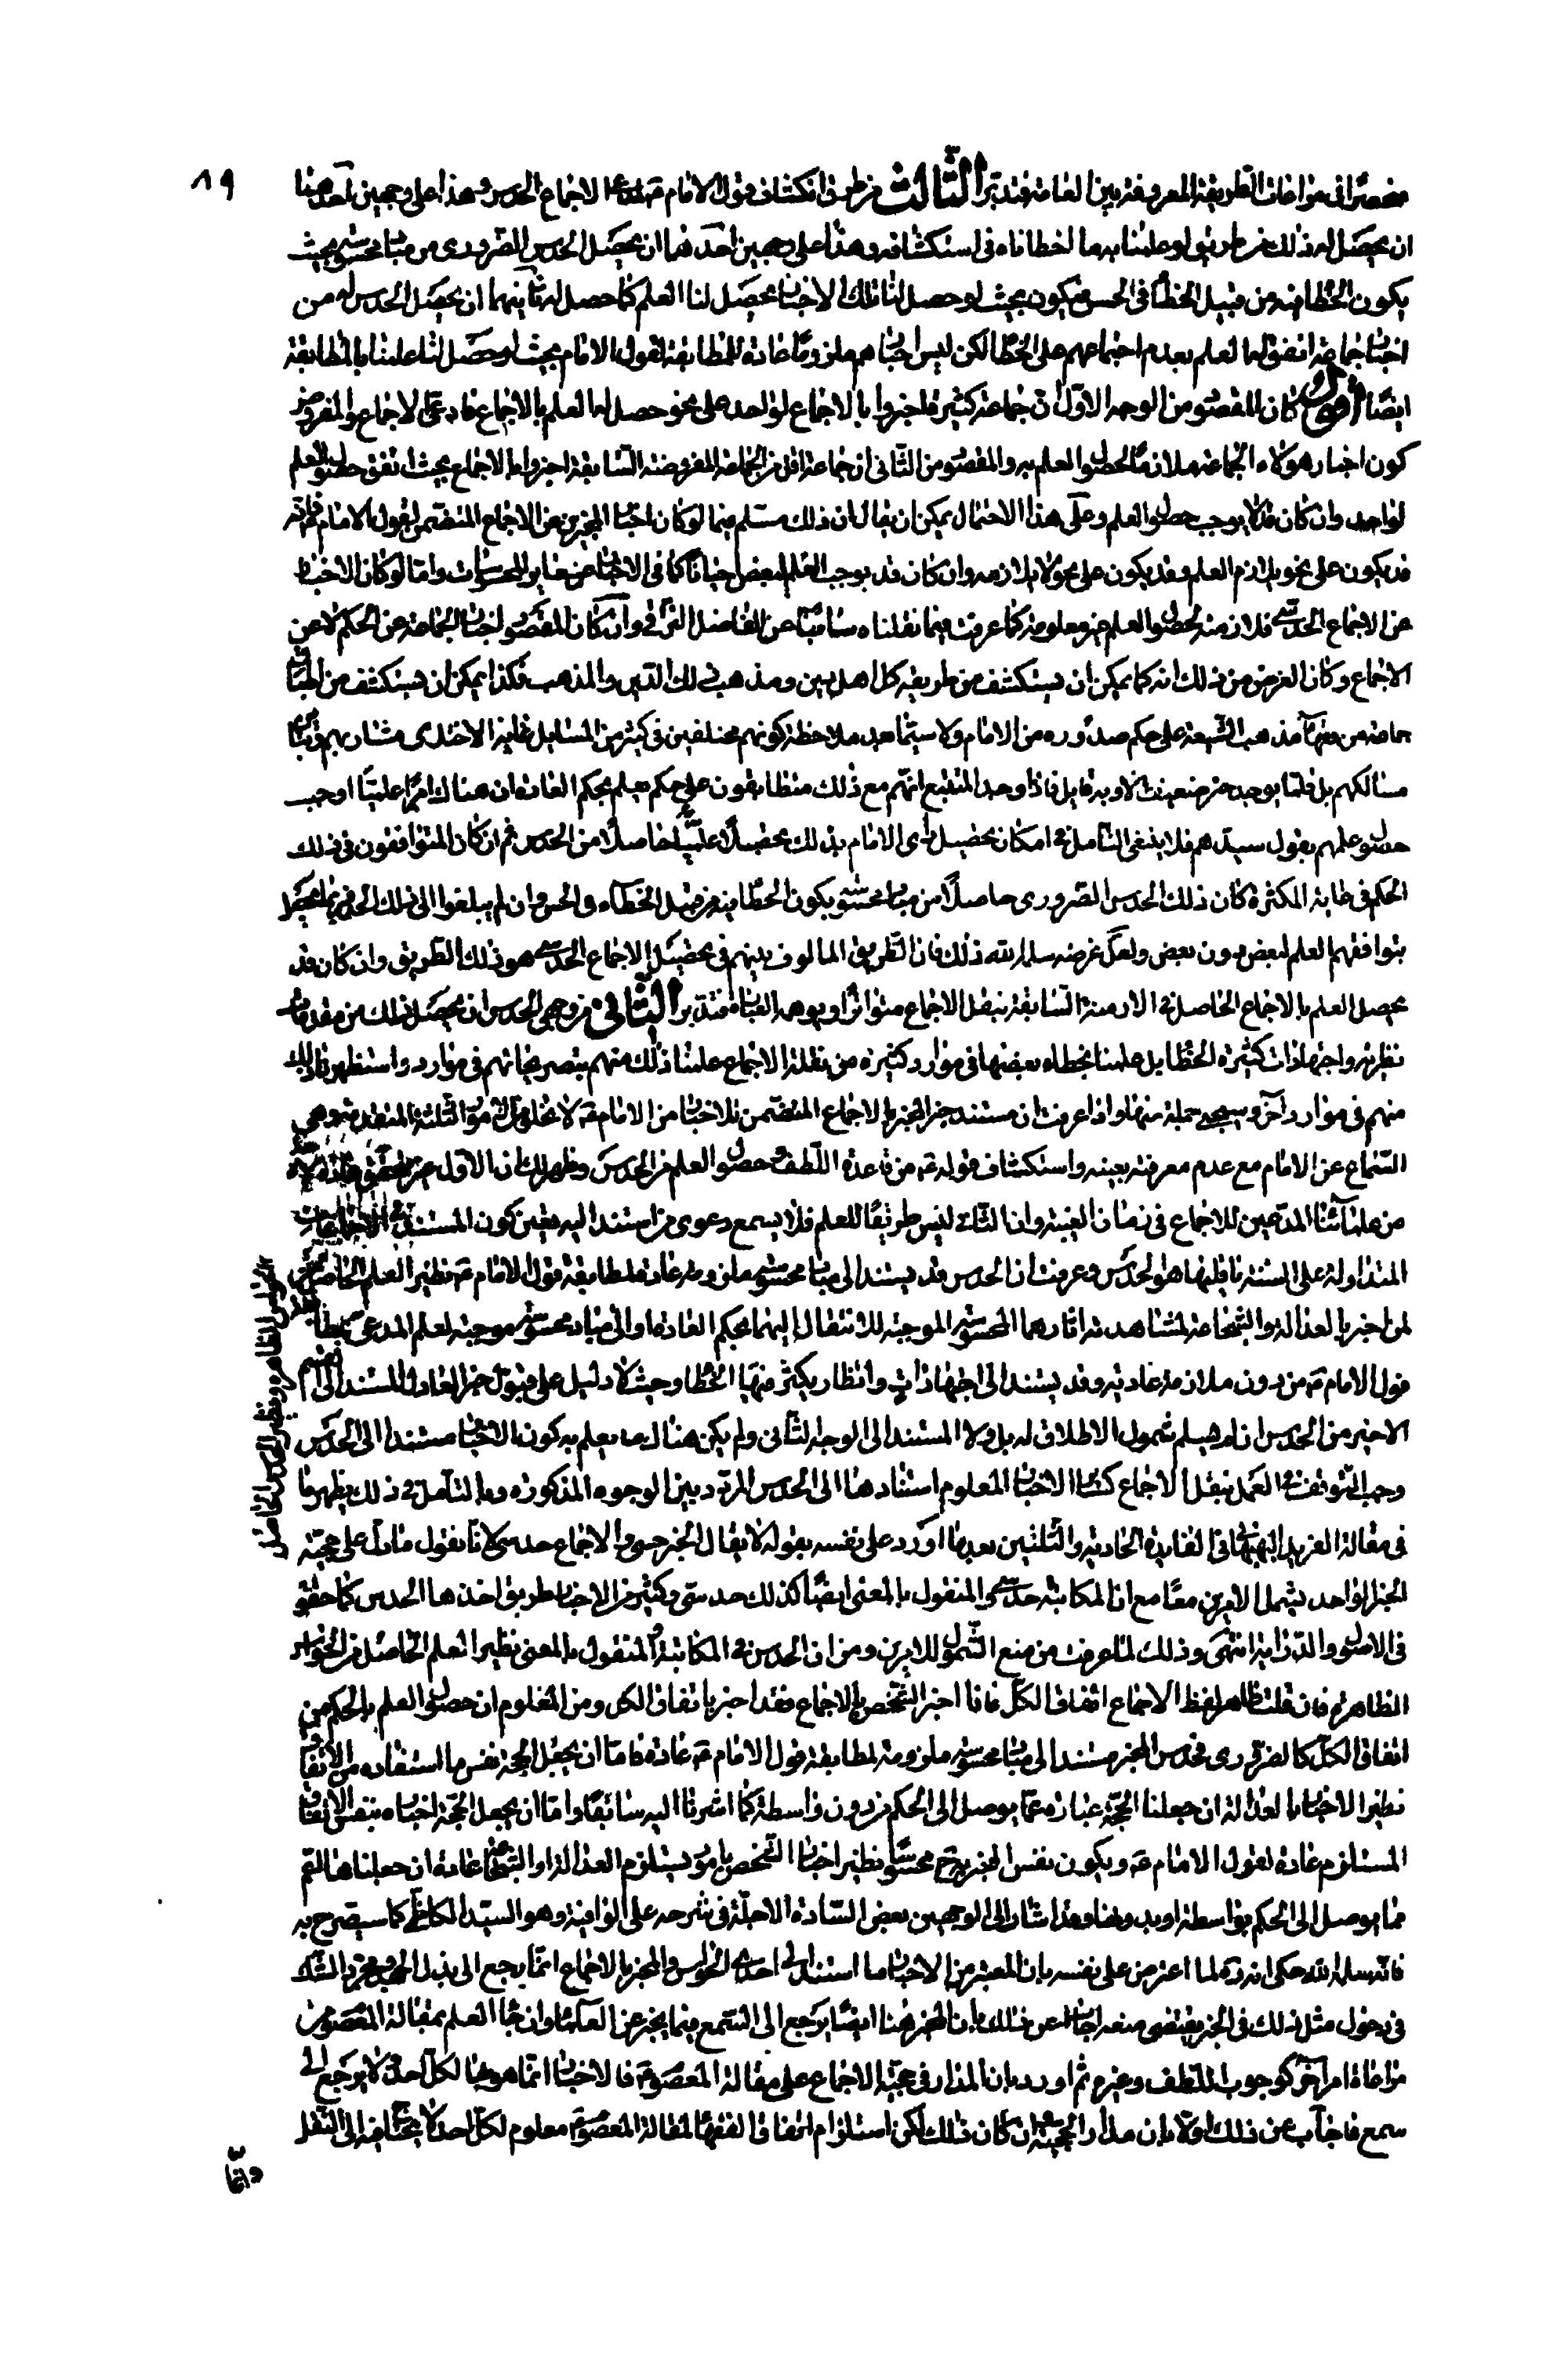 ٨٩
منحصرا في مراعات الطريقة المعروفة بين العامة فتدبر الثالث من طرق انكشاف قول الامام لمدعى الاجماع الحدس وهذا على وجهين احدهما
ان يحصل له ذلك من طريق لو علمنا به ما خطاناه في استكشافه وهذا على وجهين احدهما ان يحصل الحدس الضرورى من مبادى محسوسة بحيث
يكون الخطا فيه من قبيل الخطأ في الحس فيكون بحيث لو حصل لنا تلك الاخبار يحصل لنا العلم كما حصل له ثانيهما ان يحصل الحدس له من
اخبار جماعة اتفق لها العلم بعدم اجتماعهم على الخطا لكن ليس اخبارهم ملزوما عادة للمطابقة لقول الامام بحيث لو حصل لنا علمنا بالمطابقة
ايضا اقول كان المقصود من الوجه الاول ان جماعة كثيرة اخبروا بالاجماع لواحد على نحو حصل له العلم بالاجماع فادعى الاجماع والمفروض
كون اخبار هولاء الجماعة ملازما لحصول العلم به والمقصود من الثانى ان جماعة اقل من الجماعة المفروضة السابقة اخبروا بالاجماع بحيث اتفق حصول العلم
لواحد وان كان قد لا يوجب حصول العلم وعلى هذا الاحتمال يمكن ان يقال ان ذلك مسلم فيما لو كان اخبار المخبرين عن الاجماع المتضمن لقول الامام فانه
قد يكون على نحو يلازم العلم وقد يكون على نحو لا يلازمه وان كان قد يوجب العلم لبعض احيانا كما في الاخبار عن ساير المحسوسات واما لو كان الاخبار
عن الاجماع الحدسى فملازمته لحصول العلم غير معلومة كما عرفت فيما نقلناه سابقا عن الفاضل النراقي وان كان المقصود اخبار الجماعة عن الحكم لا عن
الاجماع وكان الغرض من ذلك انه كما يمكن ان يستكشف من طريقة كل اهل دين ومذهب ذلك الدين والمذهب فكذا يمكن ان يستكشف من اطباق
جماعة من فقهاء مذهب الشيعة على حكم صدوره من الامام ولا سيما بعد ملاحظة كونهم مختلفين في كثير من المسائل غاية الاختلاف مشاربهم
مسالكهم بل قلما يوجد خبر ضعيف الا وبه قايل فاذا وجد المتتبع انهم مع ذلك متطابقون على حكم يعلم بحكم العادة ان هناك امرا علميا اوجب
حصول علمهم بقول سيدهم فلا ينبغى التامل في امكان تحصيل راى الامام بذلك تحصيلا علميا حاصلا من الحدس ثم ان كان المتوافقون في ذلك
الحكم في غاية الكثرة كان ذلك الحدس الضرورى حاصلا من مبادى محسوسة يكون الخطا فيه من قبيل الخطاء في الحس وان لم يبلغوا الى ذلك الحد فربما يحصل
بتوافقهم العلم لبعض دون بعض ولعل غرضه سلمه الله ذلك فان الطريق المالوف بينهم في تحصيل الاجماع الحدسى هو ذلك الطريق وان كان قد
يحصل العلم بالاجماع الحاصل في الازمنة السابقة بنقل الاجماع متواترا ويوهمه العبارة فتدبر الثاني من وجهى الحدس ان يحصل ذلك من مقدمات
نظرية واجتهادات كثيرة الخطا بل علمنا بخطاء بعضها في موارد كثيرة من نقلة الاجماع علمنا ذلك منهم بتصريحاتهم في موارد واستظهرنا ذلك
منهم في موارد آخر وسيجى جملة منها واذا عرفت ان مستند خبر المخبر بالاجماع المتضمن للاخبار من الامام ع لا يخلو من الامور الثلثة المتقدمة وهي
السماع عن الامام مع عدم معرفته بعينه واستكشاف قوله ع من قاعدة اللطف وحصول العلم من الحدس وظهر لك ان الاول غير متحقق
من علمائنا المدعين للاجماع في زمان الغيبة وان الثانى ليس طريقا للعلم فلا يسمع دعوى من استند اليه يتعين كون المستند في الاجماعات
المتداولة على السنة ناقليها هو الحدس وعرفت ان الحدس قد يستند الى مبادى محسوسة ملزومة عادة لمطابقة قول الامام ع نظير العلم الحاصل
لمن اخبر بالعدالة والشجاعة لمشاهدته اثارهما المحسوسة الموجبة للانتقال اليهما بحكم العادة او الى مبادى محسوسة موجبة لعلم المدعى بمطابقة
قول الامام ع من دون ملازمة عادية وقد يستند الى اجتهادات وانظار يكثر فيها الخطا وحيث لا دليل على قبول خبر العادل المستند الى القسم
الاخير من الحدس ان لم يسلم شمول الاطلاق له بل ولا المستند الى الوجه الثانى ولم يكن هنا ما يعلم به كون الاخبار مستندا الى الحدس
وجب التوقف في العمل بنقل الاجماع كساير الاخبار المعلوم استنادها الى الحدس المردد بين الوجوه المذكورة وبالتامل في ذلك يظهر ما
في مقالة الفريد البهبهانى في الفايدة الحادية والثلثين بعد ما اورد على نفسه بقوله لا يقال الخبر حسى والاجماع حدسى لانا نقول ما دل على حجية
الخبر الواحد يشمل الامرين معا مع ان المكاتبة حدسى والمنقول بالمعنى ايضا كذلك حدسى وكثير من الاخبار طريق اخذها الحدس كما حقق
في الاصول والدراية انتهى وذلك لما عرفت من منع الشمول للامرين ومن ان الحدس في المكاتبة والمنقول بالمعنى نظير العلم الحاصل من الحواس
الظاهرة فان قلت ظاهر لفظ الاجماع اتفاق الكل فاذا اخبر الشخص بالاجماع فقد اخبر باتفاق الكل ومن المعلوم ان حصول العلم بالحكم من
اتفاق الكل كالضرورى فحدس المخبر مستندا الى مبادى محسوسة ملزومة لمطابقة قول الامام ع عادة فاما ان يجعل الحجة نفس ما استفاده من الاتفاق
نظير الاخبار بالعدالة ان جعلنا الحجة عبارة عما يوصل الى الحكم من دون واسطة كما اشرنا اليه سابقا واما ان يجعل الحجة اخباره بنفس الاتفاق
المستلزم عادة لقول الامام ع ويكون نفس المخبر به ح محسوسا نظير اخبار الشخص بامور يستلزم العدالة او الشجاعة عادة ان جعلناها القسم
مما يوصل الى الحكم بواسطة او بدونها وقد اشار الى الوجهين بعض السادة الاجلة في شرحه على الوافية وهو السيد الكاظمى كما سيصرح به
فانه سلمه الله حكى انه قده لما اعترض على نفسه بان المعتبر من الاخبار ما استند الى احدى الحواس والمخبر بالاجماع انما يرجع الى بذل الجهد ومجرد الشك
في دخول مثل ذلك في الخبر يقتضى منعه اجاب عن ذلك بان المخبر هنا ايضا يرجع الى السمع فيما يخبر عن العلماء وان جاء العلم بمقالة المعصوم من
مراعاة امر آخر كوجوب اللطف وغيره ثم اورد بان المدار في حجية الاجماع على مقالة المعصوم ع فالاخبار انما هو بها لكل احد ولا يرجع الى
سمع فاجاب عن ذلك اولا بان مدار الحجية وان كان ذلك لكن استلزام اتفاق الفقهاء لمقالة المعصوم ع معلوم لكل احد لا يحتاج فيه الى النقل
وانما